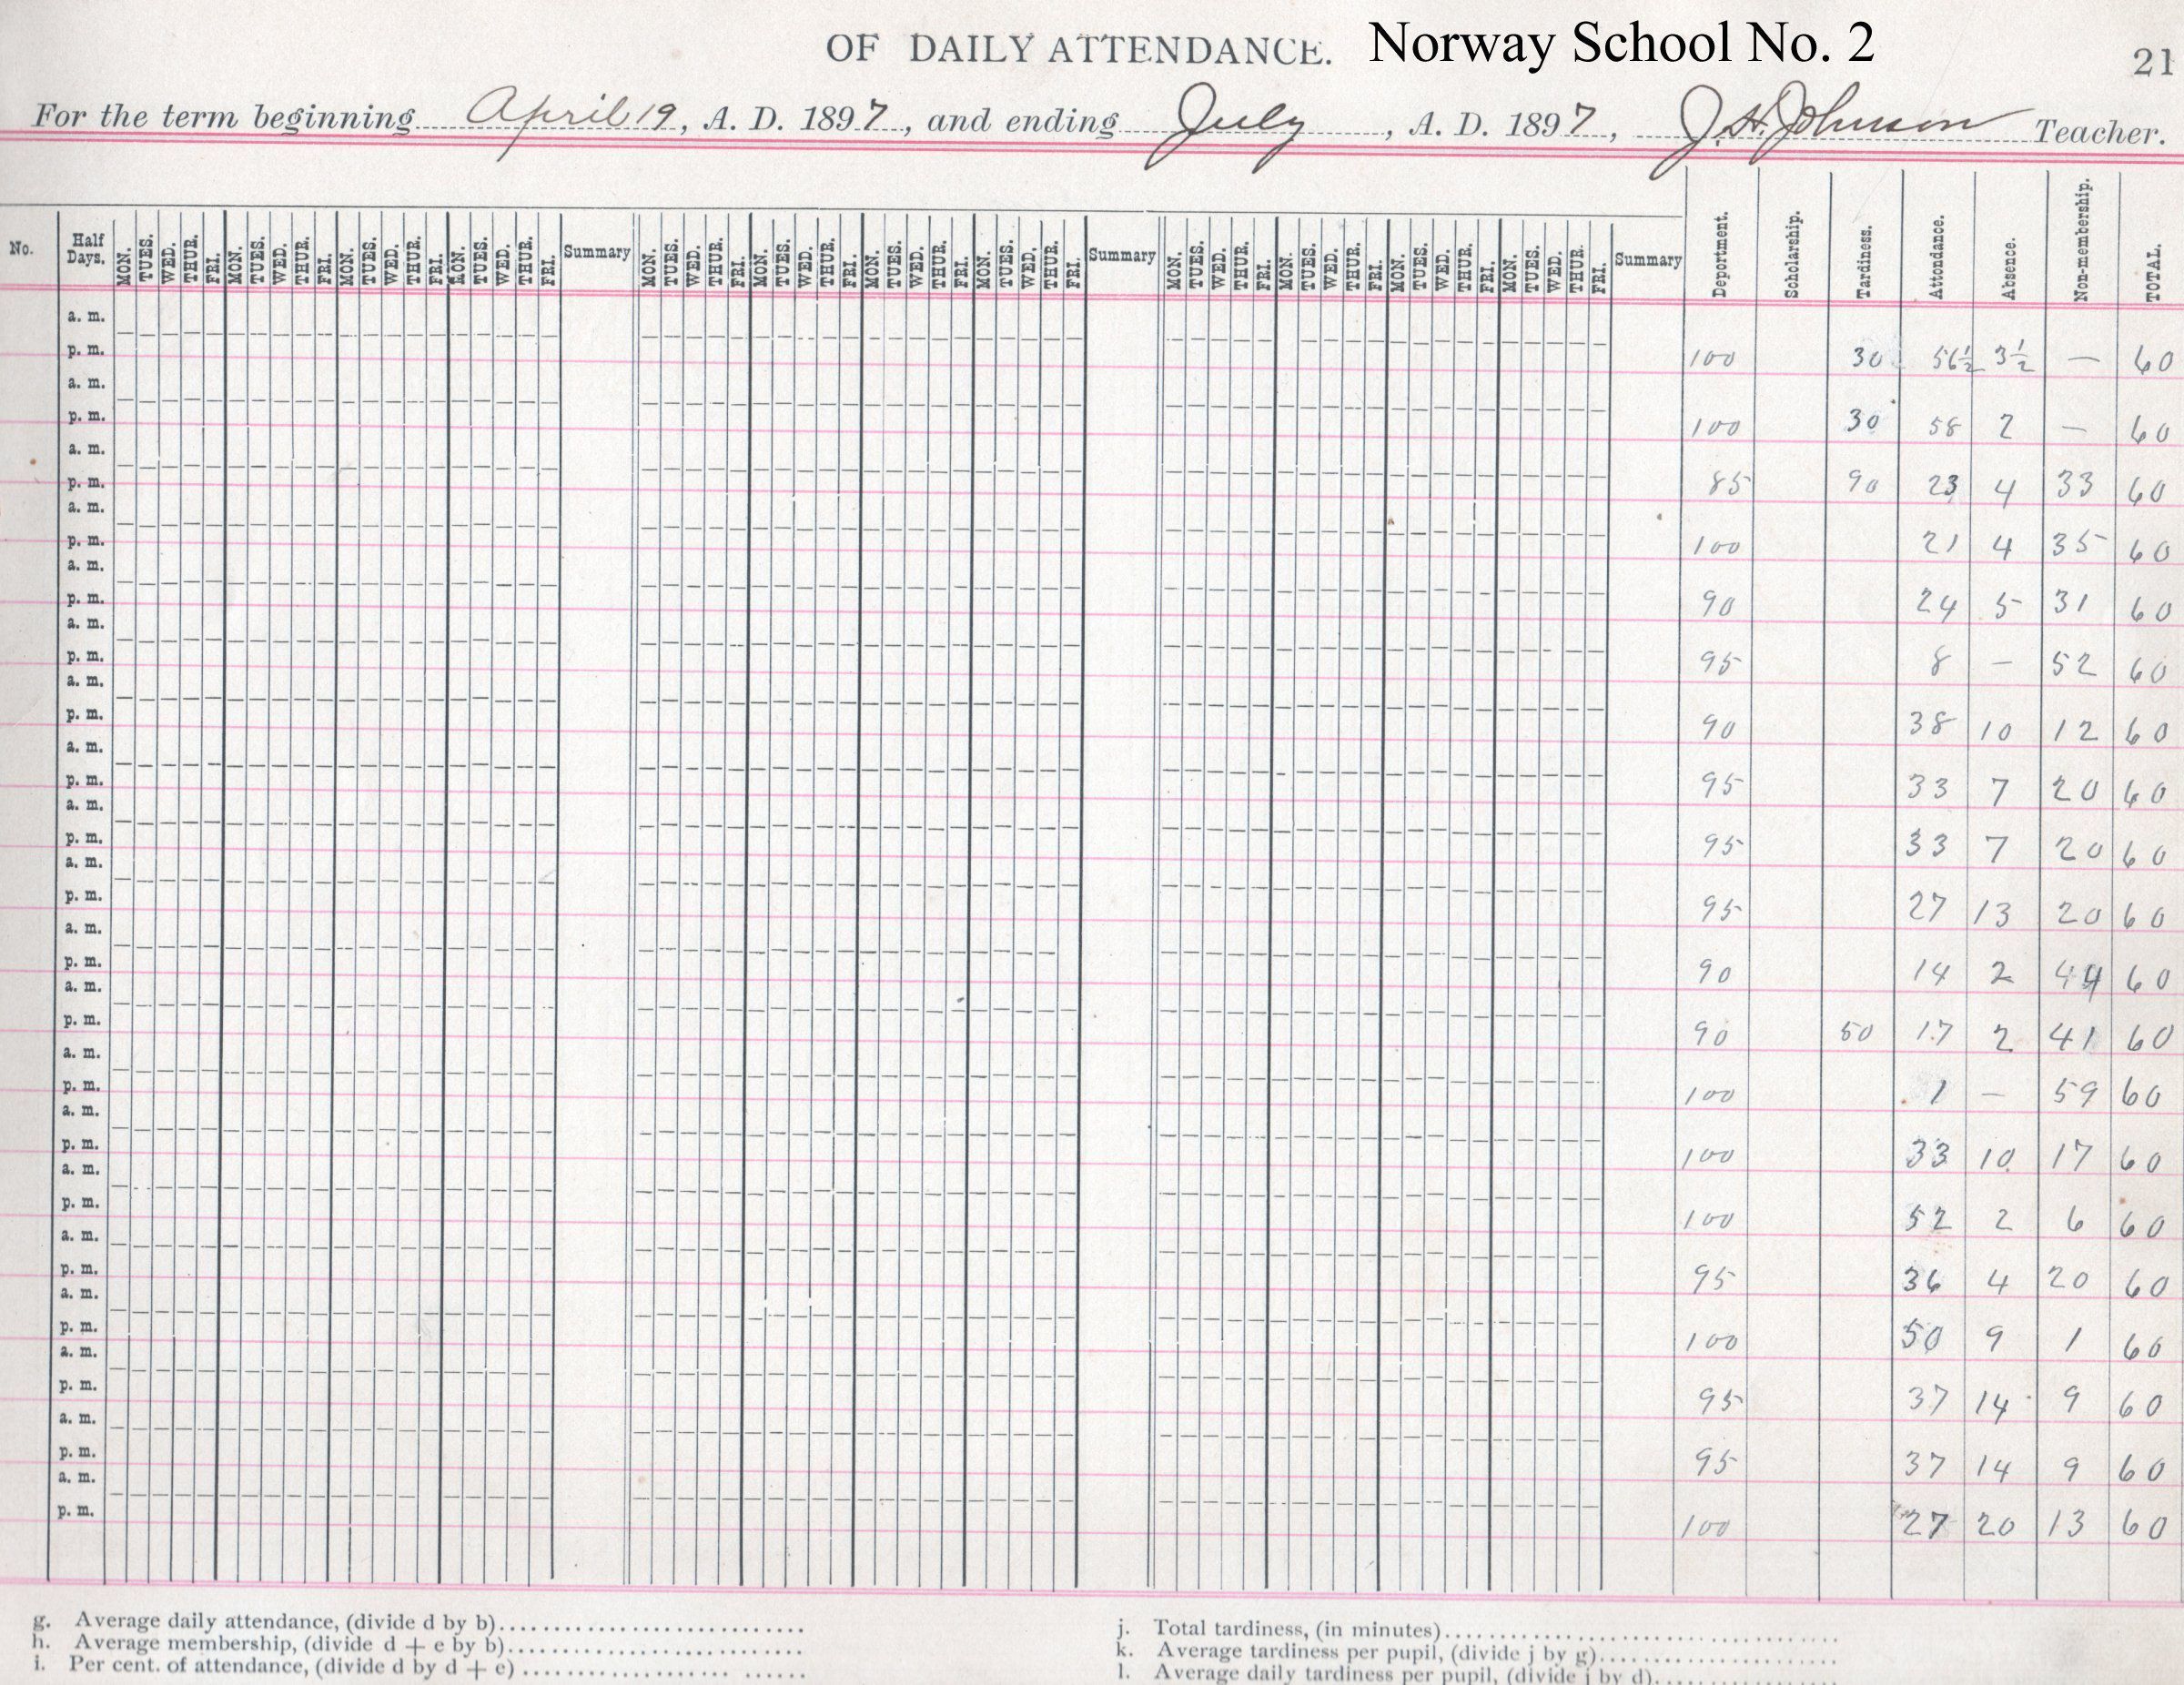 OF DAILY ATTENDANCE. Norway School No. 2 21
For the term beginning April 19, A. D. 1897, and ending July, A. D. 1897, J. H. Johnson Teacher.
No. Half Days. MON. TUES. WED. THUR. FRI. MON. TUES. WED. THUR. FRI. MON. TUES. WED. THUR. FRI. MON. TUES. WED. THUR. FRI. Summary MON. TUES. WED. THUR. FRI. MON. TUES. WED. THUR. FRI. MON. TUES. WED. THUR. FRI. MON. TUES. WED. THUR. FRI. Summary MON. TUES. WED. THUR. FRI. MON. TUES. WED. THUR. FRI. MON. TUES. WED. THUR. FRI. MON. TUES. WED. THUR. FRI. Summary Deportment. Scholarship. Tardiness. Attendance. Absence. Non-membership. TOTAL.
a. m.
p. m. 100 30 56½ 3½ — 60
a. m.
p. m. 100 30 58 2 — 60
a. m.
p. m. 85 90 23 4 33 60
a. m.
p. m. 100 21 4 35 60
a. m.
p. m. 90 24 5 31 60
a. m.
p. m. 95 8 — 52 60
a. m.
p. m. 90 38 10 12 60
a. m.
p. m. 95 33 7 20 60
a. m.
p. m. 95 33 7 20 60
a. m.
p. m. 95 27 13 20 60
a. m.
p. m. 90 14 2 44 60
a. m.
p. m. 90 50 17 2 41 60
a. m.
p. m. 100 1 — 59 60
a. m.
p. m. 100 33 10 17 60
a. m.
p. m. 100 52 2 6 60
a. m.
p. m. 95 36 4 20 60
a. m.
p. m. 100 50 9 1 60
a. m.
p. m. 95 37 14 9 60
a. m.
p. m. 95 37 14 9 60
a. m.
p. m. 100 27 20 13 60
g. Average daily attendance, (divide d by b)
h. Average membership, (divide d + e by b)
i. Per cent. of attendance, (divide d by d + e)
j. Total tardiness, (in minutes)
k. Average tardiness per pupil, (divide j by g)
l. Average daily tardiness per pupil, (divide j by d)